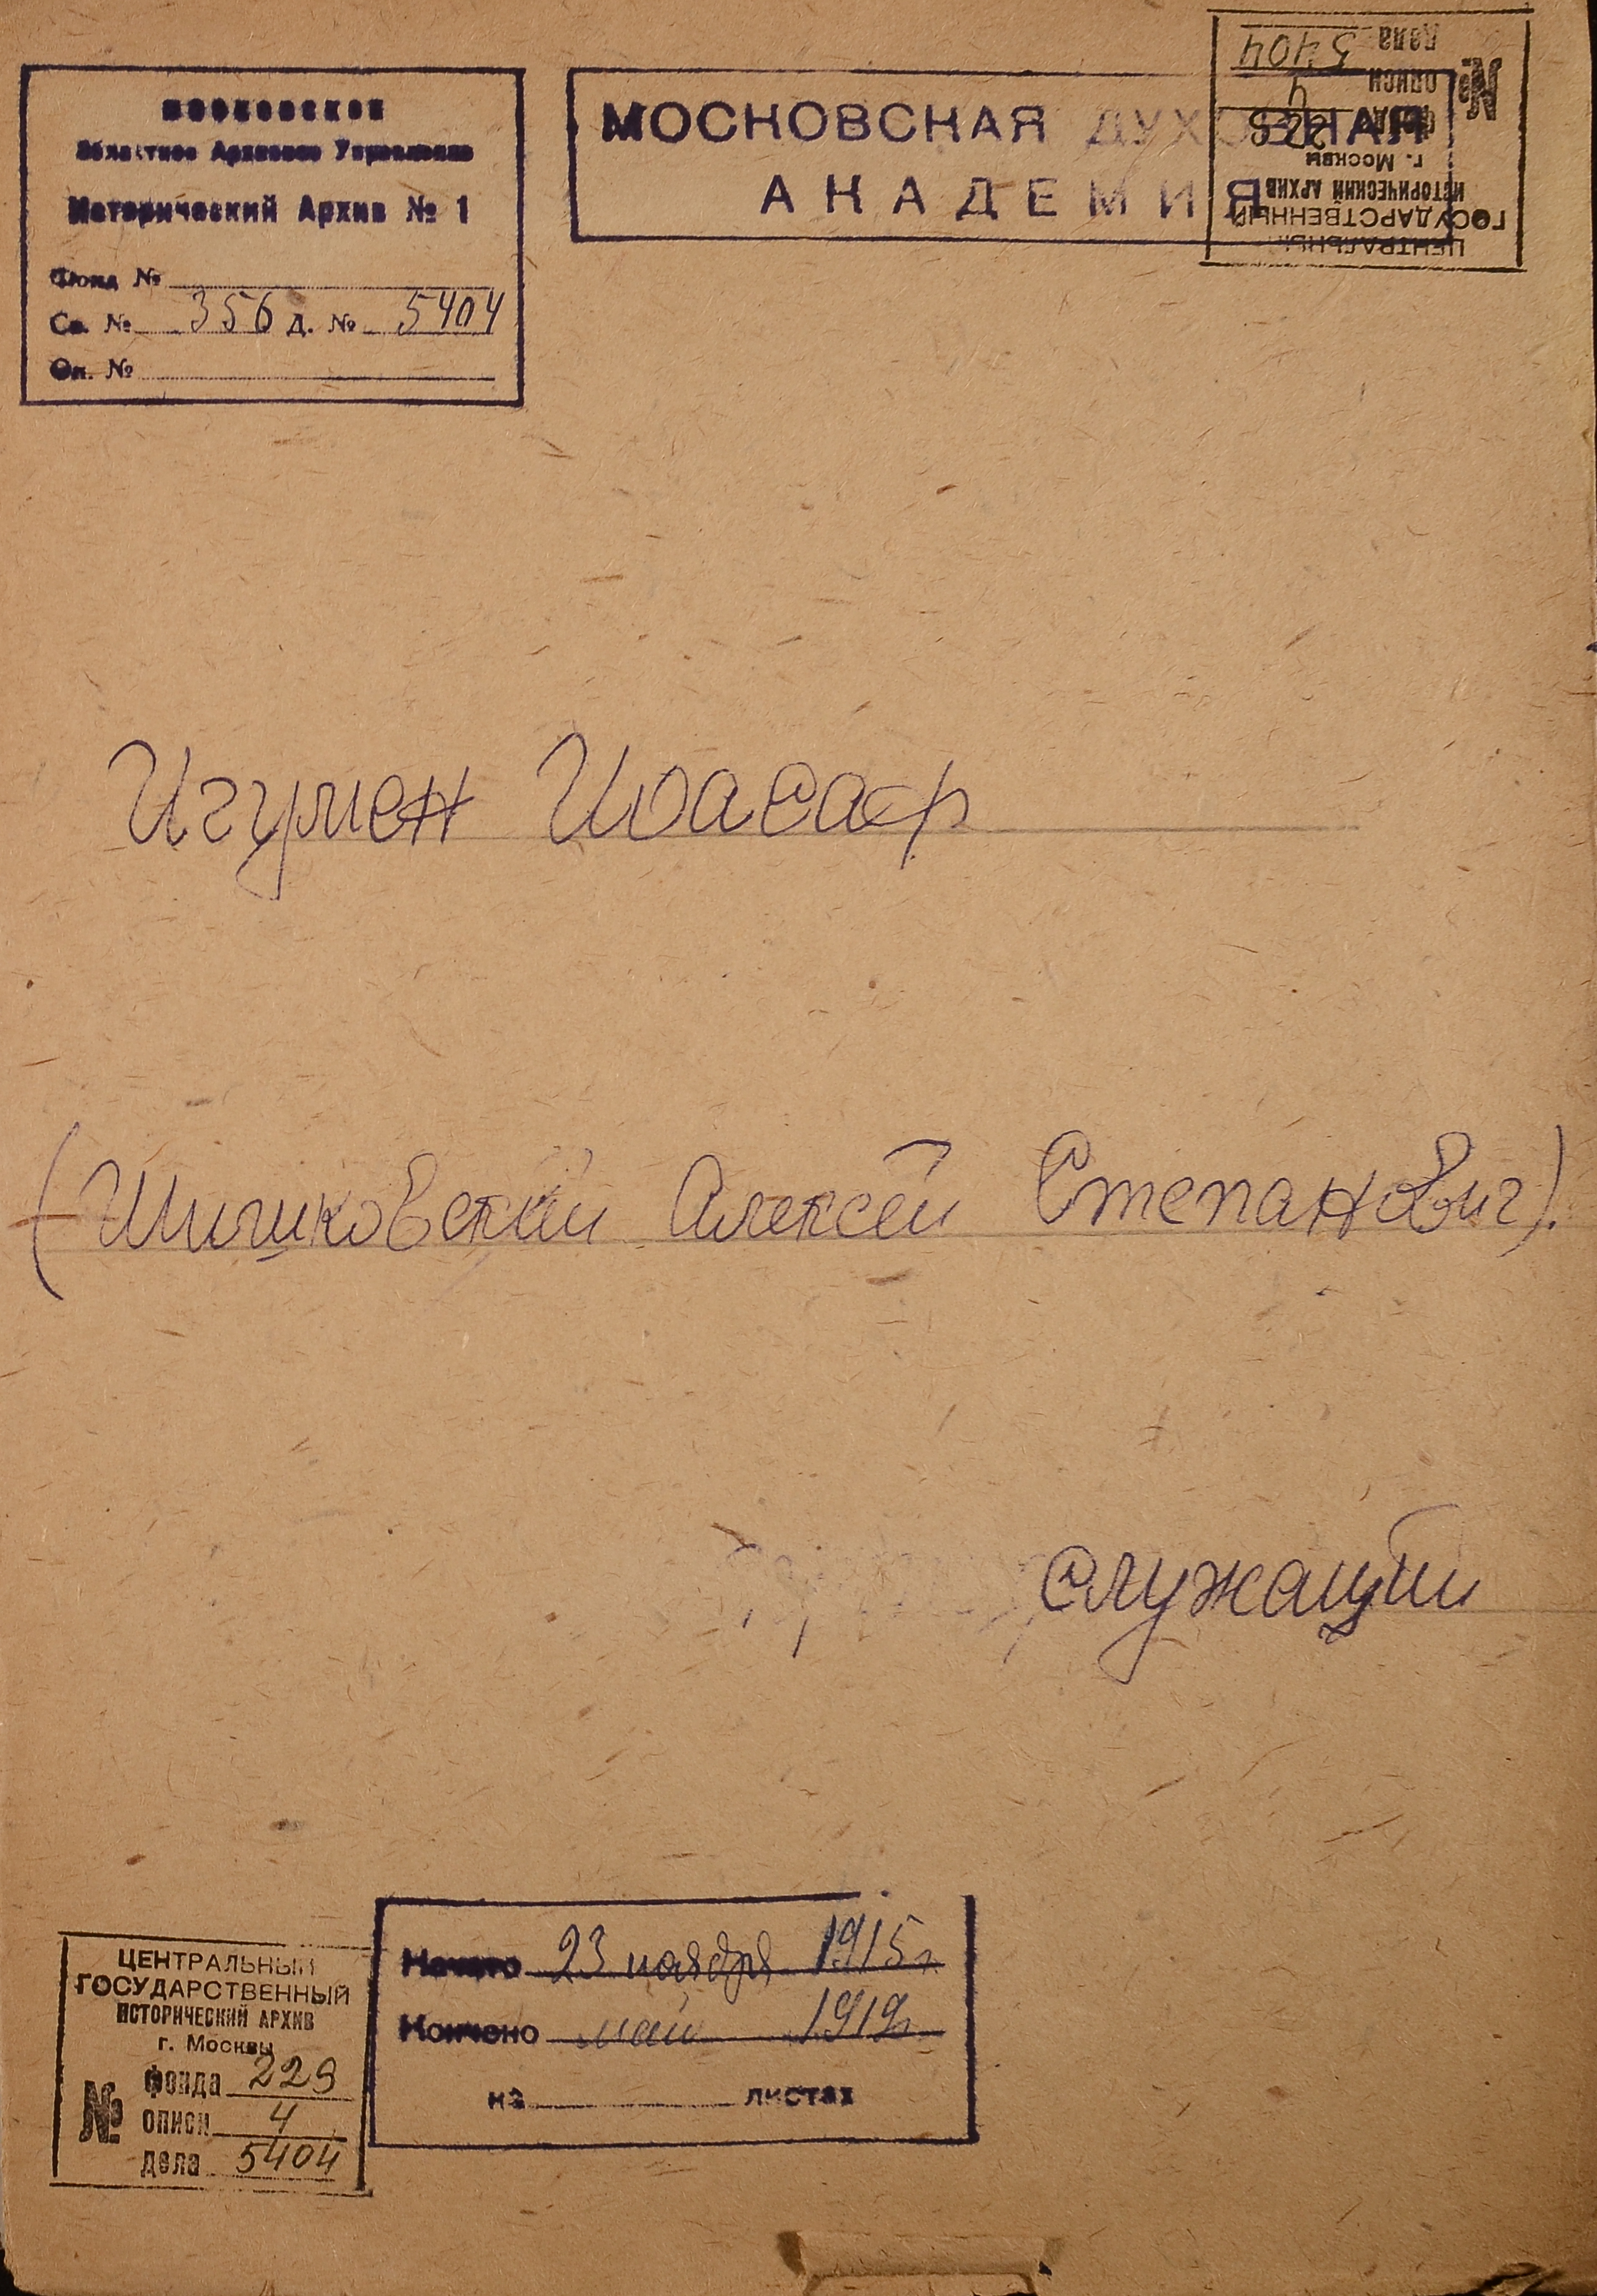 МОСКОВСКОЕ
Областное Архивное Управление
Исторический Архив № 1
Фонд №
Св. № 356 Д. № 5404
Оп. №
МОСКОВСКАЯ ДУХОВНАЯ
АКАДЕМИЯ
ЦЕНТРАЛЬНЫЙ
ГОСУДАРСТВЕННЫЙ
ИСТОРИЧЕСКИЙ АРХИВ
г. Москвы
№
фонда 229
описи 4
дела 5404
Игумен Иоасаф
(Шишковский Алексей Степанович).
служащий
Начато 23 ноября 1915 г.
Кончено май 1919 г.
на листах
ЦЕНТРАЛЬНЫЙ
ГОСУДАРСТВЕННЫЙ
ИСТОРИЧЕСКИЙ АРХИВ
г. Москвы
№
фонда 229
описи 4
дела 5404